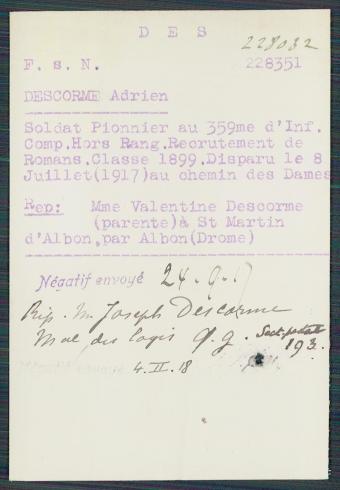 D E S
228032
F. s. N. 228351
DESCORME Adrien
Soldat Pionnier au 359me d'Inf.
Comp.Hors Rang.Recrutement de
Romans.Classe 1899.Disparu le 8
Juillet(1917)au chemin des Dames
Rep: Mme Valentine Descorme
(parente)à St Martin
d'Albon,par Albon(Drome)
Négatif envoyé 24.9.17
Rép. M. Joseph Descorme
Mal des logis Q.G. Sect. postale
193.
4.II.18